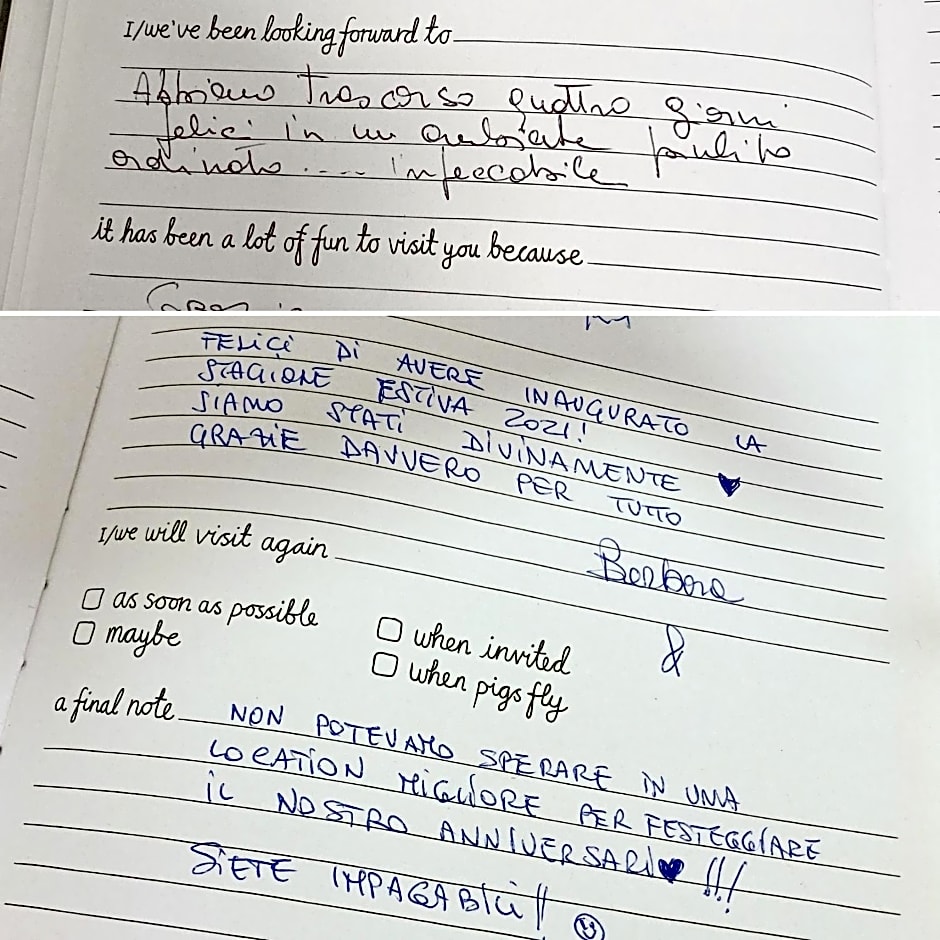 I/we've been looking forward to
Abbiamo trascorso quattro giorni
felici in un ambiente pulito
ordinato .... impeccabile
it has been a lot of fun to visit you because
FELICI DI AVERE INAUGURATO LA
STAGIONE ESTIVA 2021!
SIAMO STATI DIVINAMENTE ♥
GRAZIE DAVVERO PER TUTTO
I/we will visit again
Barbara
&
as soon as possible
maybe
when invited
when pigs fly
a final note NON POTEVAMO SPERARE IN UNA
LOCATION MIGLIORE PER FESTEGGIARE
IL NOSTRO ANNIVERSARI♥ !!!
SIETE IMPAGABILI!! ☺